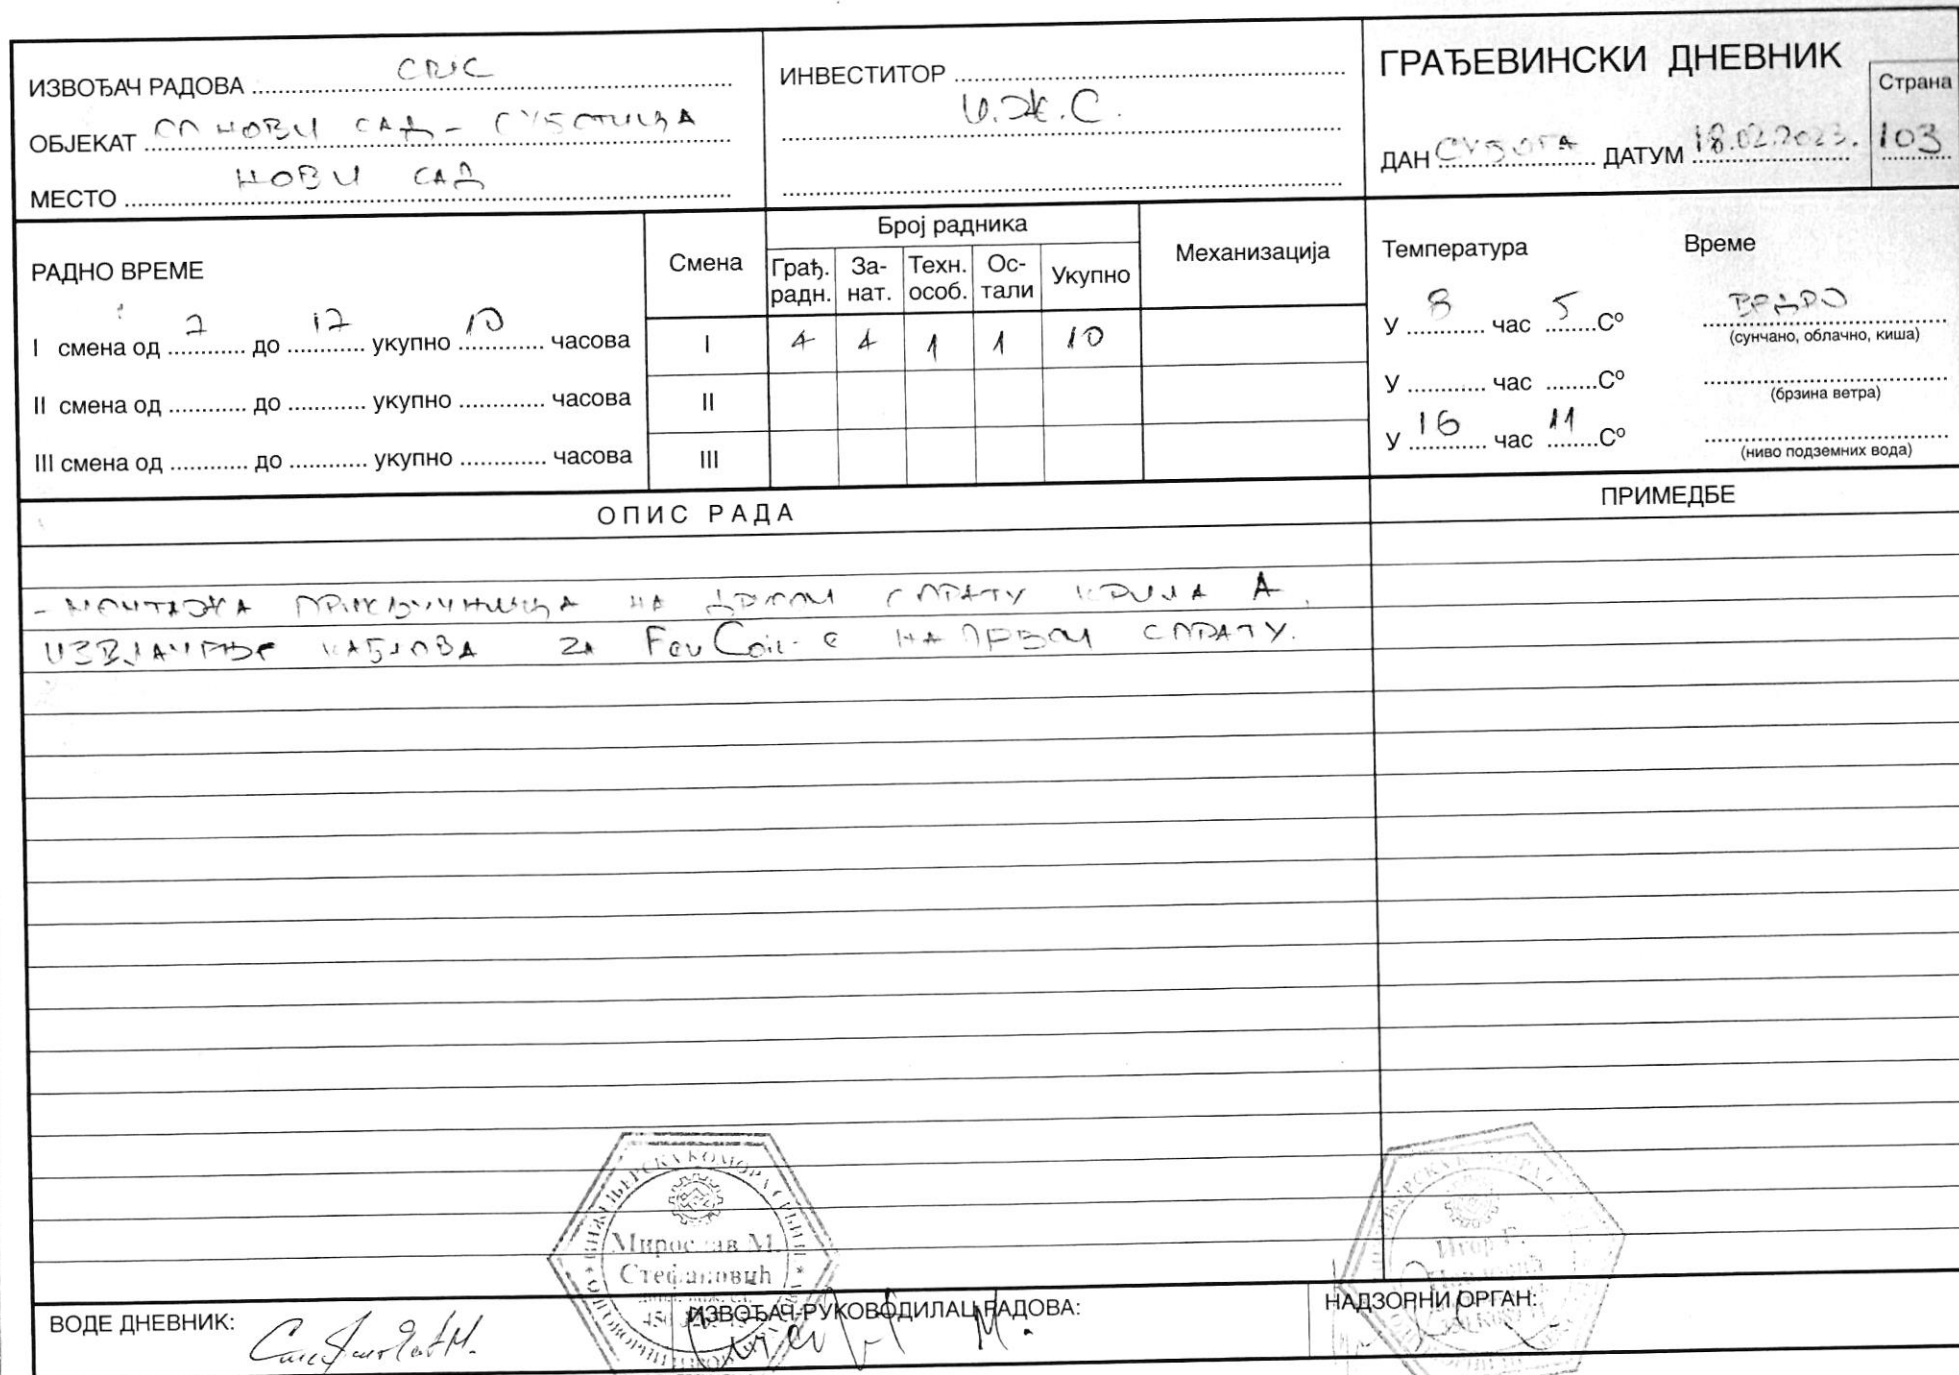 ИЗВОЂАЧ РАДОВА
ОБЈЕКАТ НОВИ САД - СУБОТИЦА
МЕСТО НОВИ САД
ИНВЕСТИТОР
И.Ж.С.
ГРАЂЕВИНСКИ ДНЕВНИК
Страна
ДАН СУБОТА ДАТУМ 18.02.2023. 103
РАДНО ВРЕМЕ
I смена од 7 до 17 укупно 10 часова
II смена од до укупно часова
III смена од до укупно часова
Смена
Број радника
Грађ. радн. За- нат. Техн. особ. Ос- тали Укупно
Механизација
I 4 4 1 1 10
II
III
Температура Време
У 8 час 5 Сº ВЕДРО
(сунчано, облачно, киша)
У час Сº
(брзина ветра)
У 16 час 11 Сº
(ниво подземних вода)
ОПИС РАДА
ПРИМЕДБЕ
- МОНТАЖА ПРИКЉУЧНИЦА НА ДРУГОМ СПРАТУ КРИЛА А.
ИЗВЛАЧЕЊЕ КАБЛОВА ЗА Fan Coil-е НА ПРВОМ СПРАТУ.
ИНЖЕЊЕРСКА КОМОРА СРБИЈЕ
Мирослав М.
Стефановић
Игор
ВОДЕ ДНЕВНИК:
ИЗВОЂАЧ-РУКОВОДИЛАЦ РАДОВА:
НАДЗОРНИ ОРГАН: